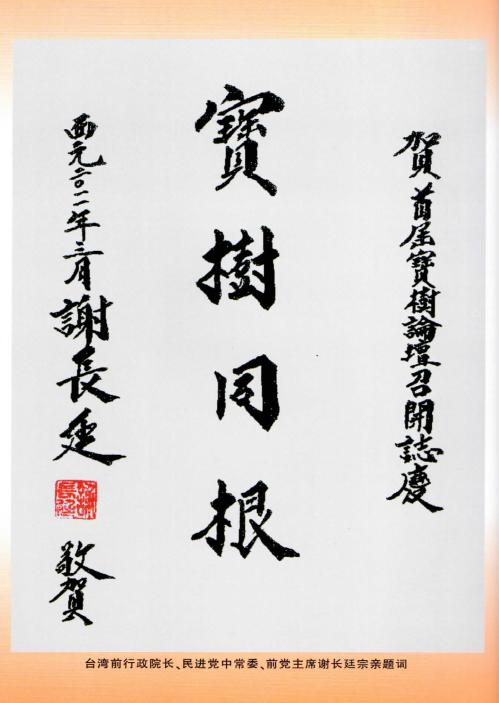 賀首屆寶樹論壇召開誌慶
寶樹同根
西元二〇一一年三月謝長廷
謝長廷
敬賀
台湾前行政院长、民进党中常委、前党主席谢长廷宗亲题词